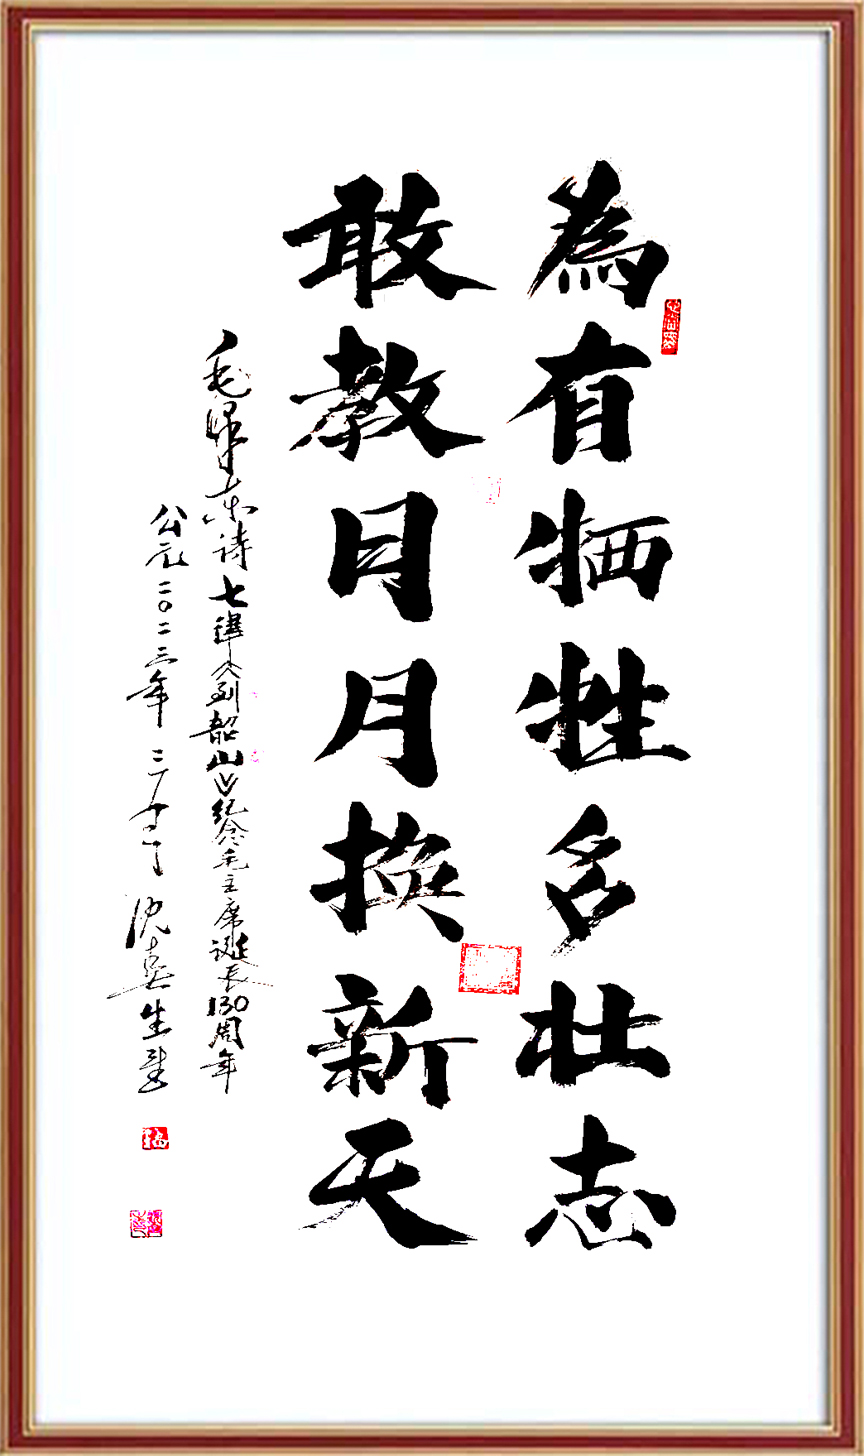 為有牺牲多壮志
敢教日月换新天
毛泽东诗七律《到韶山》纪念毛主席诞辰130周年
公元二〇二三年 沈喜生书